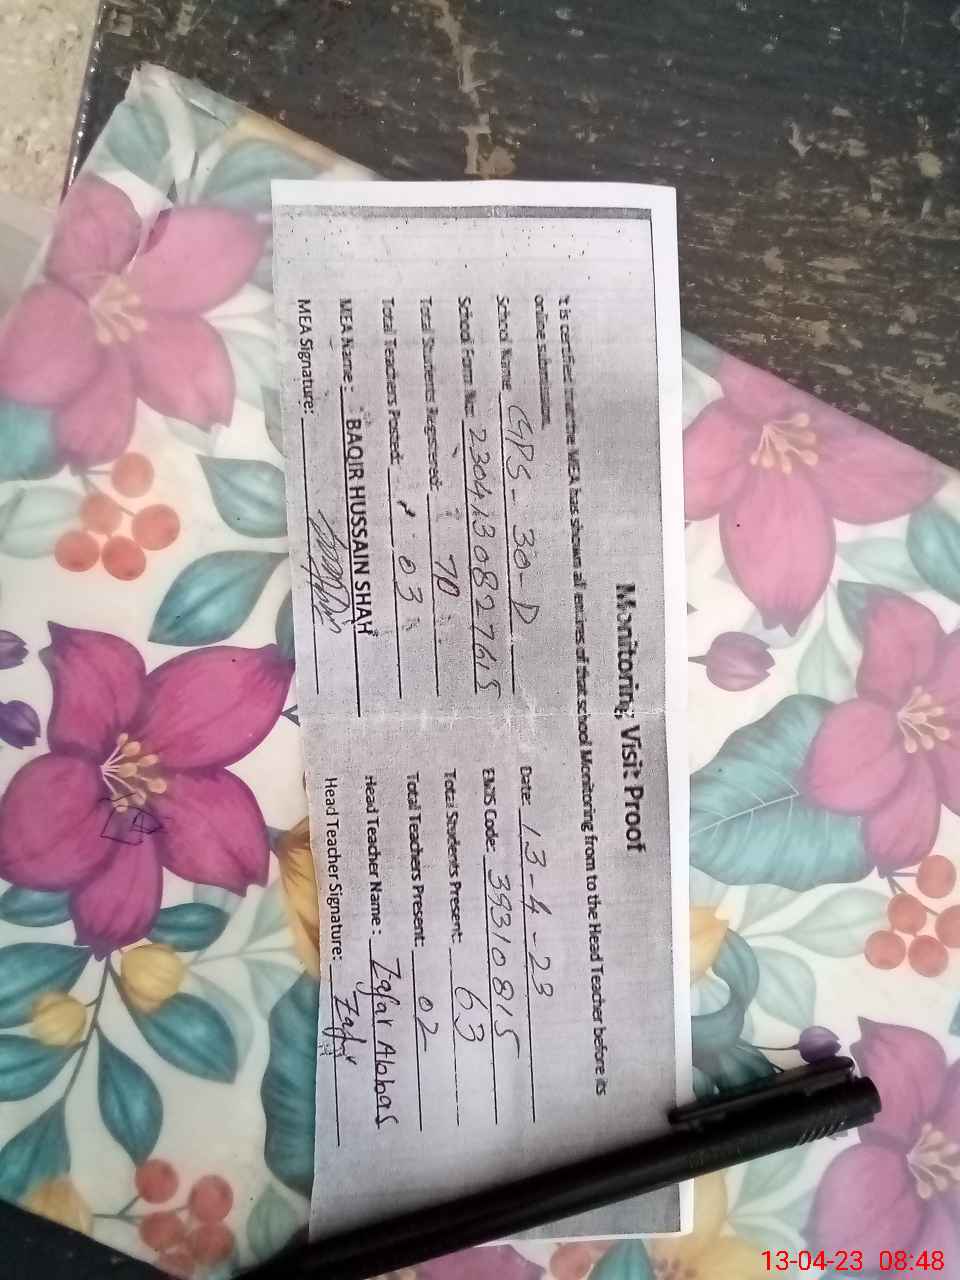 Monitoring Visit Proof
It is certified that the MEA has shown all entries of that school Monitoring from to the Head Teacher before its
online submission.
School Name GPS - 30 - D Date: 13-4-23
School Form No: 2304130827615 EMIS Code: 39310815
Total Students Registered: 70 Total Students Present: 63
Total Teachers Posted: 03 Total Teachers Present: 02
MEA Name: BAQIR HUSSAIN SHAH Head Teacher Name: Zafar Abbas
MEA Signature: Head Teacher Signature: Zafar
13-04-23 08:48